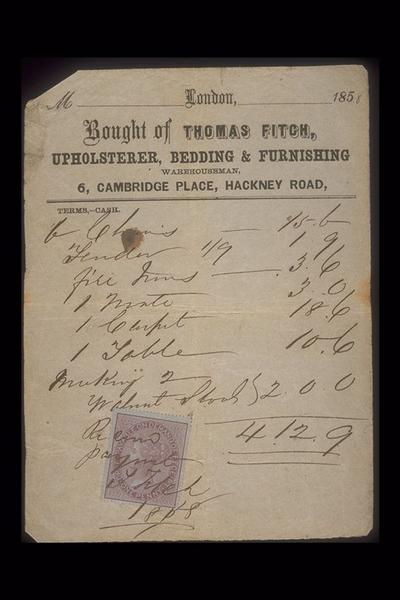 M London, 1858
Bought of THOMAS FITCH,
UPHOLSTERER, BEDDING & FURNISHING
WAREHOUSEMAN,
6, CAMBRIDGE PLACE, HACKNEY ROAD,
TERMS,—CASH.
6 Chairs — 15-6
Fender 1/9 1.9
fire Irons — .3.6
1 3.0
1 Carpet 18.6
1 Table 10.6
Making 2
Walnut } 2.0.0
4.12.9
ON DEMAND
PENNY